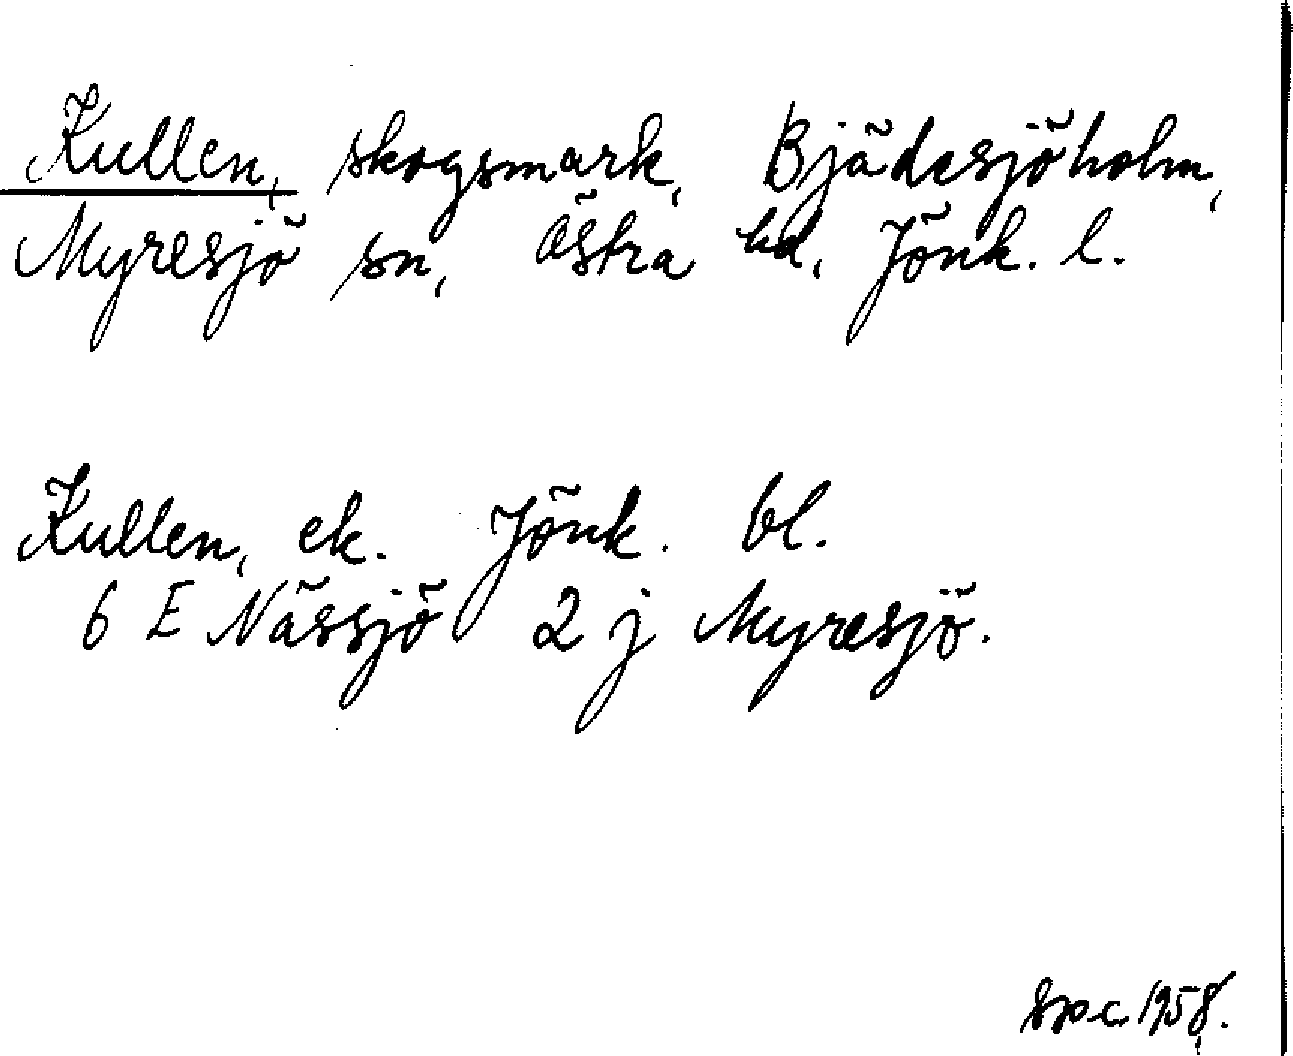 Kullen, skogsmark, Bjädesjöholm,
Myresjö sn, Östra hd, Jönk. l.
Kullen, ek. Jönk. bl.
6 E Nässjö 2 j Myresjö.
spc 1958.